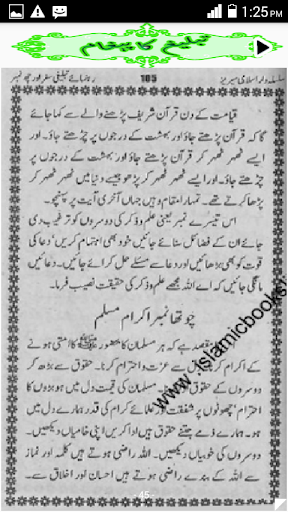 1:25 PM
تبلیغ کا پیغام
سلسلہ دار اسلامی سیریز 105 رہنمائے تبلیغی سفر اور چھ نمبر
قیامت کے دن قرآن شریف پڑھنے والے سے کہا جائے
گا کہ قرآن پڑھتے جاؤ اور بہشت کے درجوں پر چڑھتے جاؤ۔ اور
ایسے ٹھہر ٹھہر کر پڑھتے جاؤ اور بہشت کے درجوں پر چڑھتے
جاؤ۔ اور ایسے ٹھہر ٹھہر کر پڑھو جیسے دنیا میں ٹھہر ٹھہر کر
پڑھا کرتے تھے۔ تمہارا مقام وہیں جہاں آخری آیت پر پہنچو۔
اس تیسرے نمبر یعنی علم و ذکر کی دوسروں کو ترغیب دی
جائے ان کے فضائل سنائے جائیں خود بھی اہتمام کریں' دعا کی
قوت کو بھی بڑھائیں اور دعا سے مسئلے حل کرائے جائیں۔ دعائیں
مانگی جائیں کہ اے اللہ مجھے علم و ذکر کی حقیقت نصیب فرما۔
چوتھا نمبر اکرام مسلم
مقصد ہے کہ ہر مسلمان کا حضور ﷺ کا امتی ہونے
کے اکرام کر سے عزت و احترام کرنا۔ حقوق سے بڑھ کر
دوسروں کے حقوق مسلمان کی قیمت دل میں ہو بڑوں کا
احترام' چھوٹوں پر شفقت اور علمائے کرام کی قدر ہمارے دل میں
ہو۔ ہمارے ذمے جتنے حقوق ہیں ادا کریں اپنی خامیاں دیکھیں۔
دوسروں کی خوبیاں دیکھیں۔ اللہ راضی ہوتے ہیں کلمہ اور نماز
سے اللہ کے بندے راضی ہوتے ہیں احسان اور اخلاق سے۔
www.islamicbooksl
45